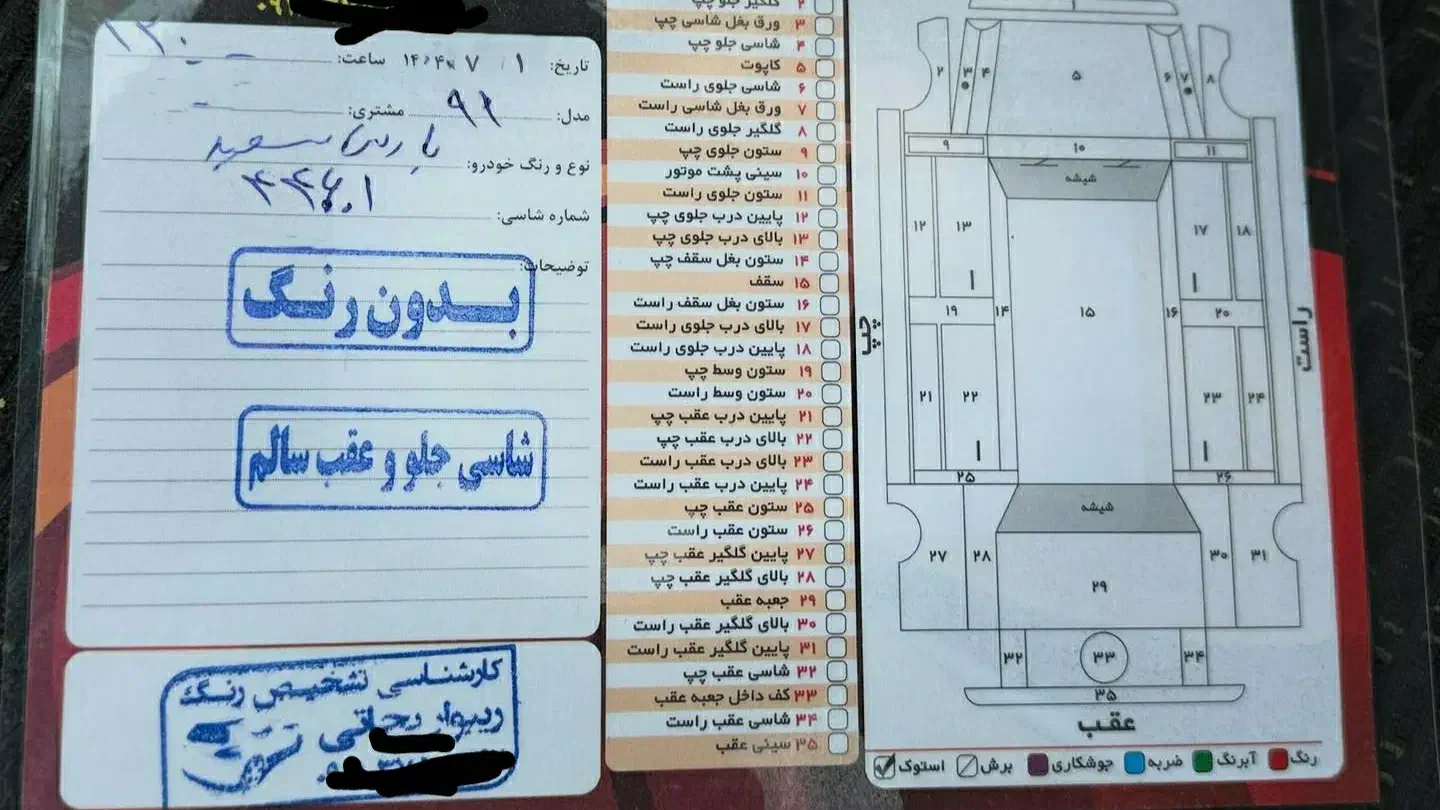 تاریخ: ۱۴۰۴/۷/۱ ساعت:
مدل: ۹۲ مشتری:
نوع و رنگ خودرو: پارس سفید
شماره شاسی:
توضیحات:
بـدون رنـگ
شاسی جلو و عقب سالم
کارشناسی تشخیص رنگ
۲ گلگیر جلو چپ
۳ ورق بغل شاسی چپ
۴ شاسی جلو چپ
۵ کاپوت
۶ شاسی جلوی راست
۷ ورق بغل شاسی راست
۸ گلگیر جلوی راست
۹ ستون جلوی چپ
۱۰ سینی پشت موتور
۱۱ ستون جلوی راست
۱۲ پایین درب جلوی چپ
۱۳ بالای درب جلوی چپ
۱۴ ستون بغل سقف چپ
۱۵ سقف
۱۶ ستون بغل سقف راست
۱۷ بالای درب جلوی راست
۱۸ پایین درب جلوی راست
۱۹ ستون وسط چپ
۲۰ ستون وسط راست
۲۱ پایین درب عقب چپ
۲۲ بالای درب عقب چپ
۲۳ بالای درب عقب راست
۲۴ پایین درب عقب راست
۲۵ ستون عقب چپ
۲۶ ستون عقب راست
۲۷ پایین گلگیر عقب چپ
۲۸ بالای گلگیر عقب چپ
۲۹ جعبه عقب
۳۰ بالای گلگیر عقب راست
۳۱ پایین گلگیر عقب راست
۳۲ شاسی عقب چپ
۳۳ کف داخل جعبه عقب
۳۴ شاسی عقب راست
۳۵ سینی عقب
۲ ۳ ۴ ۵ ۶ ۷ ۸
۹ ۱۰ ۱۱
شیشه
۱۲ ۱۳ ۱۷ ۱۸
۱۹ ۱۴ ۱۵ ۱۶ ۲۰
چپ
راست
۲۱ ۲۲ ۲۳ ۲۴
۲۵ ۲۶
شیشه
۲۷ ۲۸ ۲۹ ۳۰ ۳۱
۳۲ ۳۳ ۳۴
۳۵
عقب
رنگ آبرنگ ضربه جوشکاری برش استوک